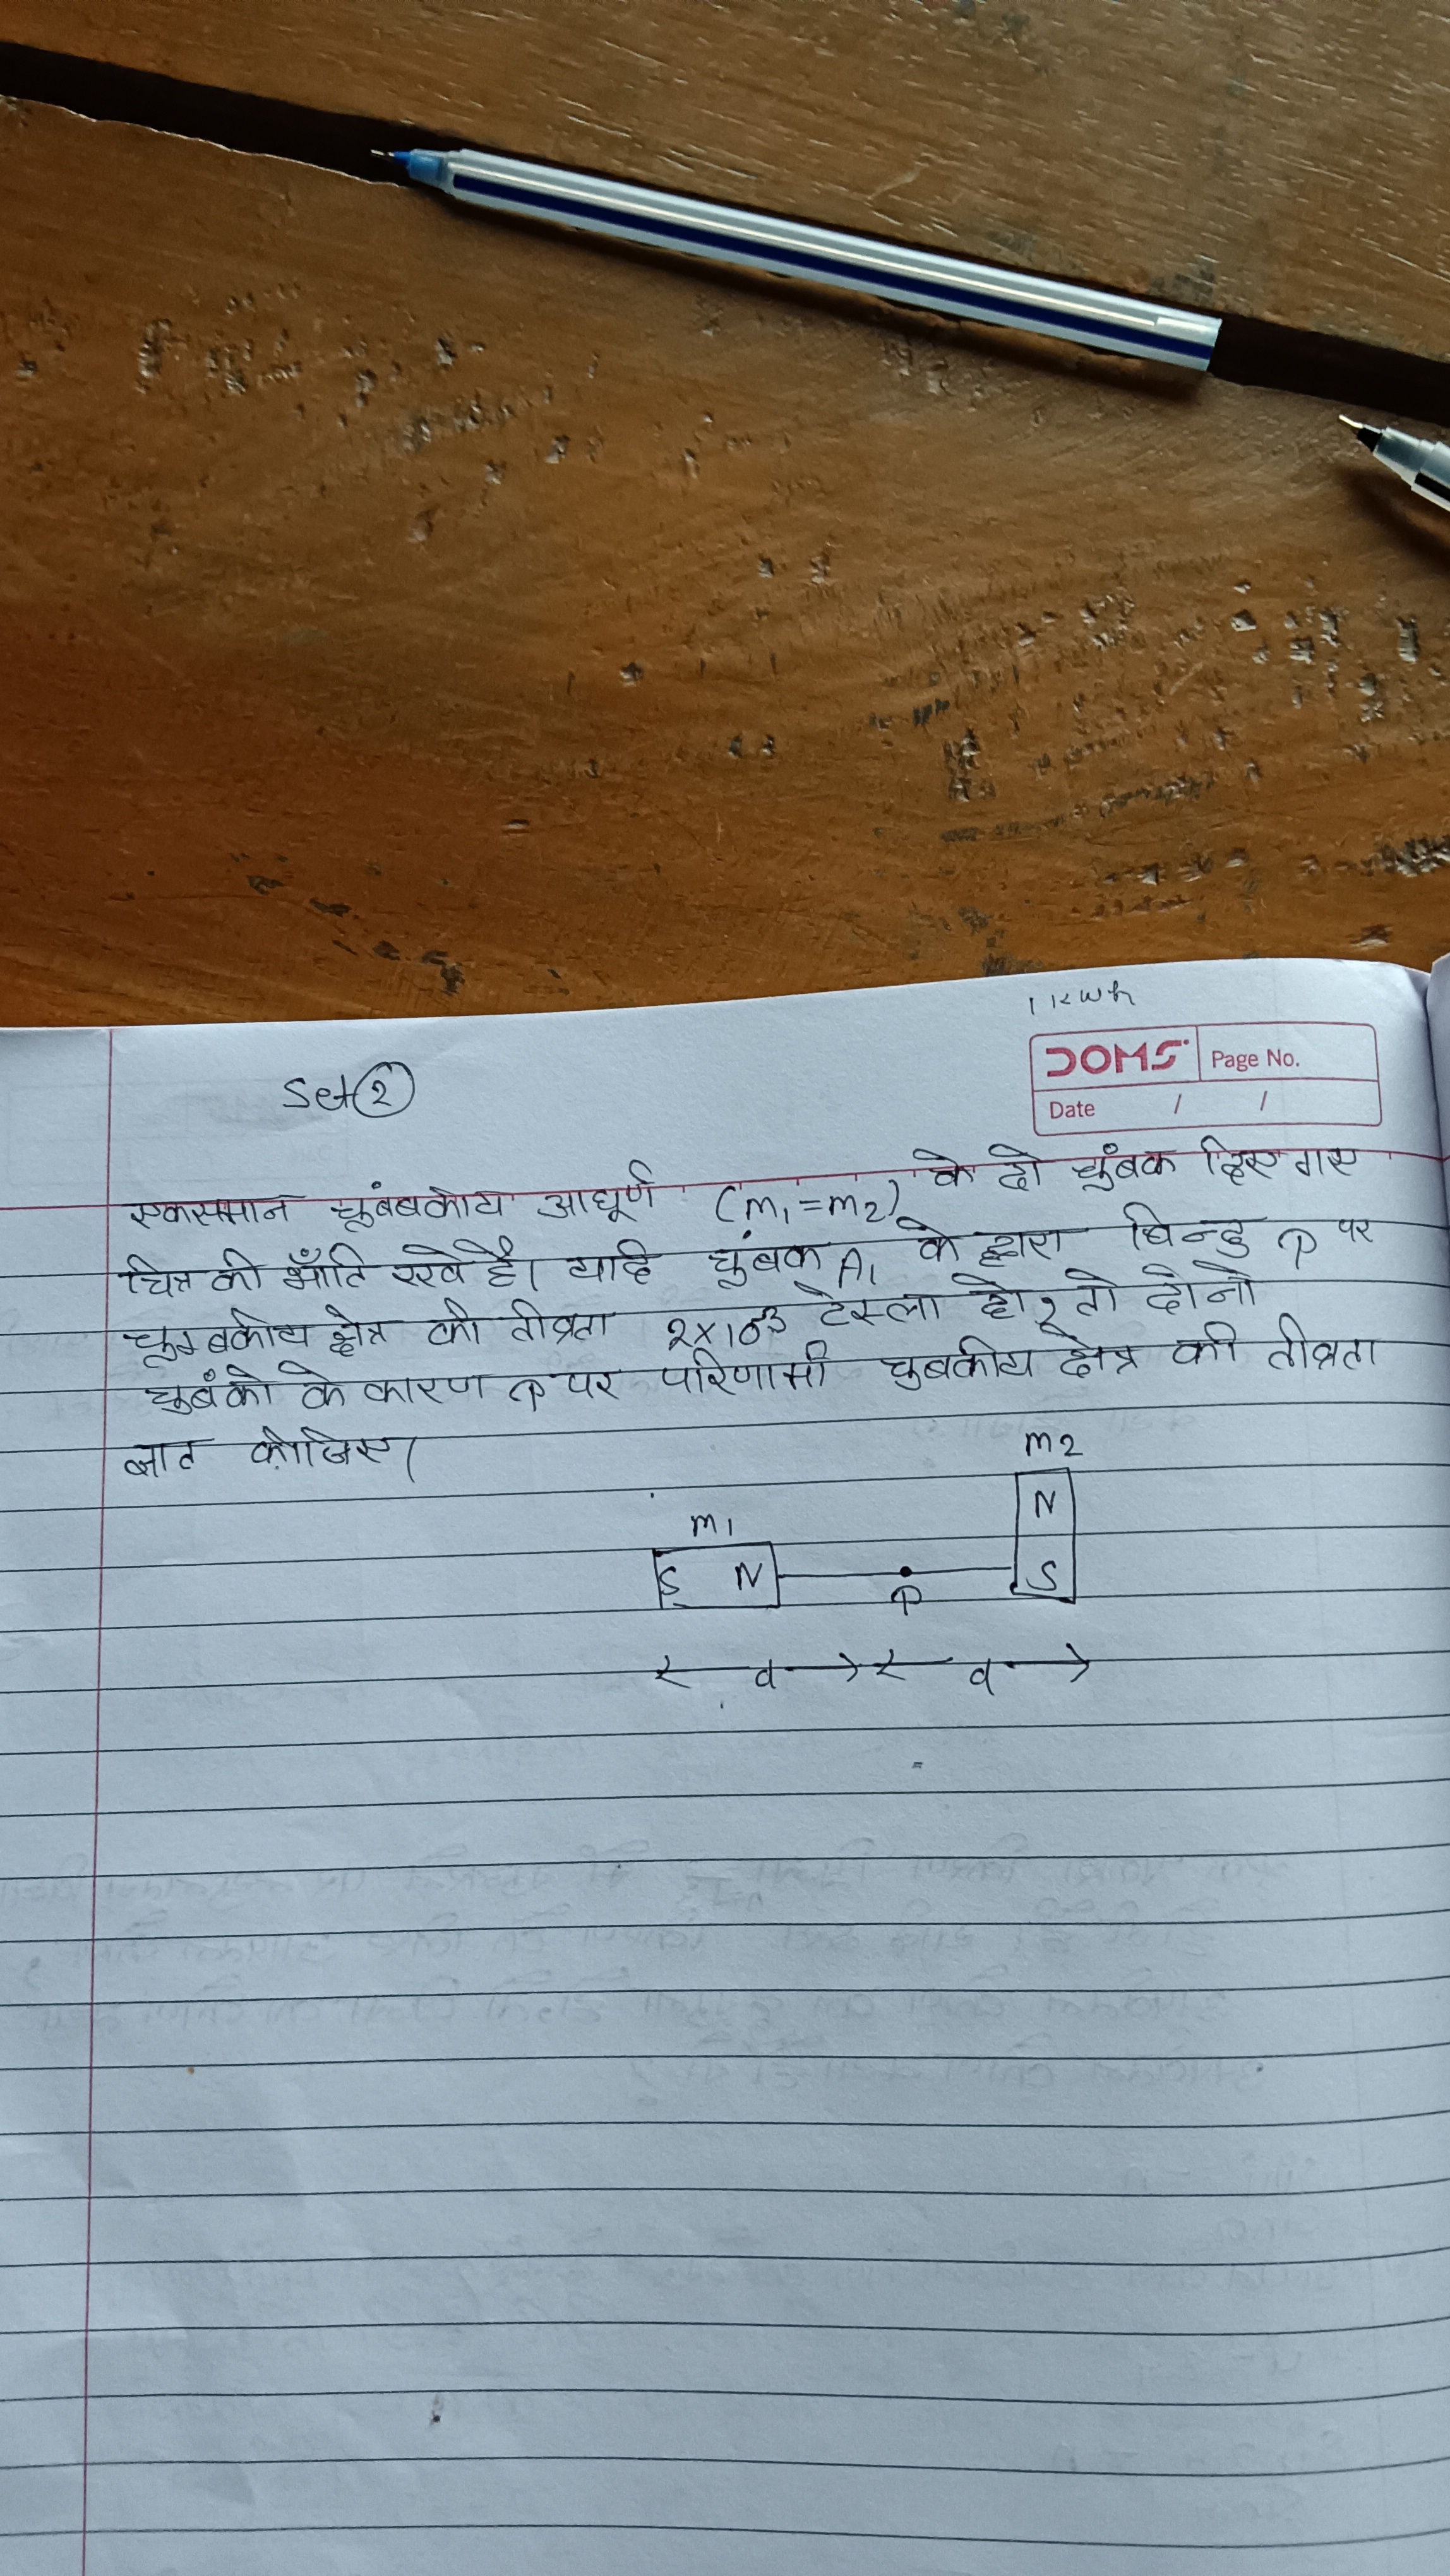 1 kwh
DOMS Page No.
Date / /
Set 2
एकसमान चुंबबकीय आघूर्ण (m1 = m2) के दो चुंबक दिए गए
चित्र की भाँति रखे है। यदि चुंबक A1 के द्वारा बिन्दु P पर
चुम्बकीय क्षेत्र की तीव्रता 2×10-3 टेस्ला हो, तो दोनो
चुबंको के कारण P पर परिणामी चुबकीय क्षेत्र की तीव्रता
ज्ञात कीजिए।
m2
N
m1
S N
P
S
d d